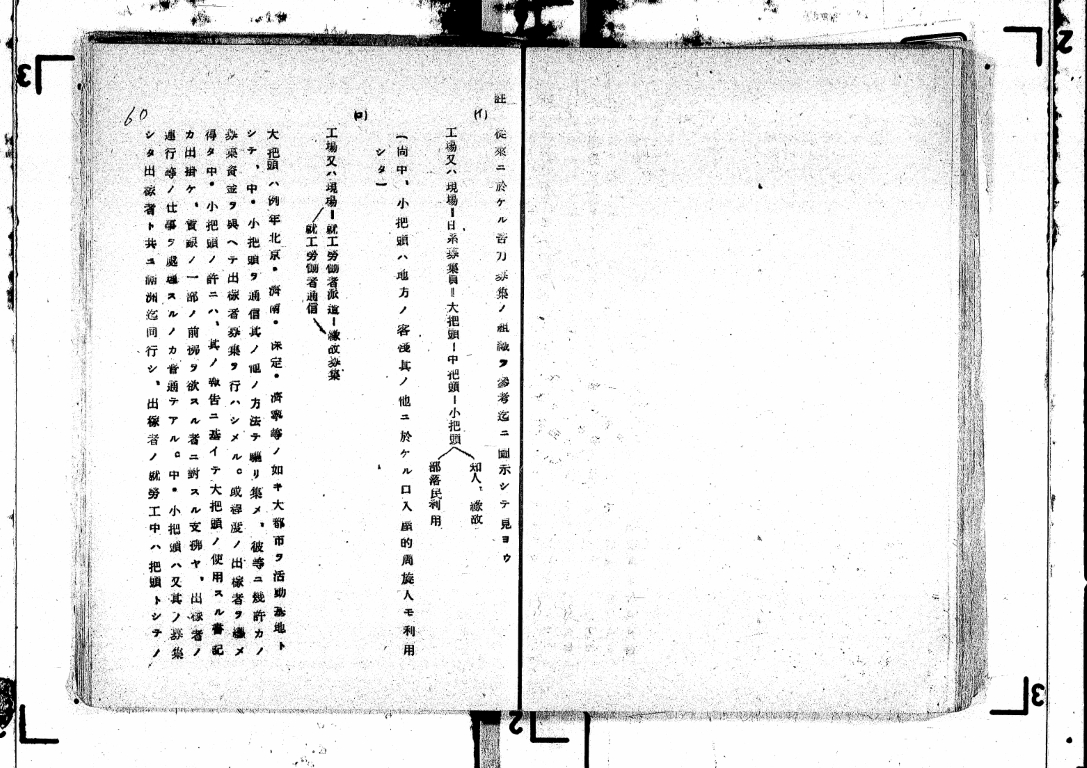 註 從來ニ於ケル苦力募集ノ組織ヲ參考迄ニ圖示シテ見ヨウ
(イ)
工場又ハ現場=日系募集員=大把頭―中把頭―小把頭
知人、緣故
部落民利用
(尚中、小把頭ハ地方ノ客棧其ノ他ニ於ケル口入屋的周旋人モ利用
シタ)
(ロ)
工場又ハ現場=就工勞働者派遣―緣故募集
就工勞働者通信
大把頭ハ例年北京・濟南・保定・濟寧等ノ如キ大都市ヲ活動基地ト
シテ、中・小把頭ヲ通信其ノ他ノ方法テ驅リ集メ、彼等ニ幾許カノ
募集資金ヲ與ヘテ出稼者募集ヲ行ハシメル。或程度ノ出稼者ヲ纏メ
得タ中・小把頭ノ許ニハ、其ノ報告ニ基イテ大把頭ノ使用スル書記
カ出掛ケ、賃銀ノ一部ノ前拂ヲ欲スル者ニ對スル支拂ヤ、出稼者ノ
連行等ノ仕事ヲ處理スルノカ普通テアル。中・小把頭ハ又其ノ募集
シタ出稼者ト共ニ滿洲迄同行シ、出稼者ノ就勞工中ハ把頭トシテノ
60
3
2
3
2